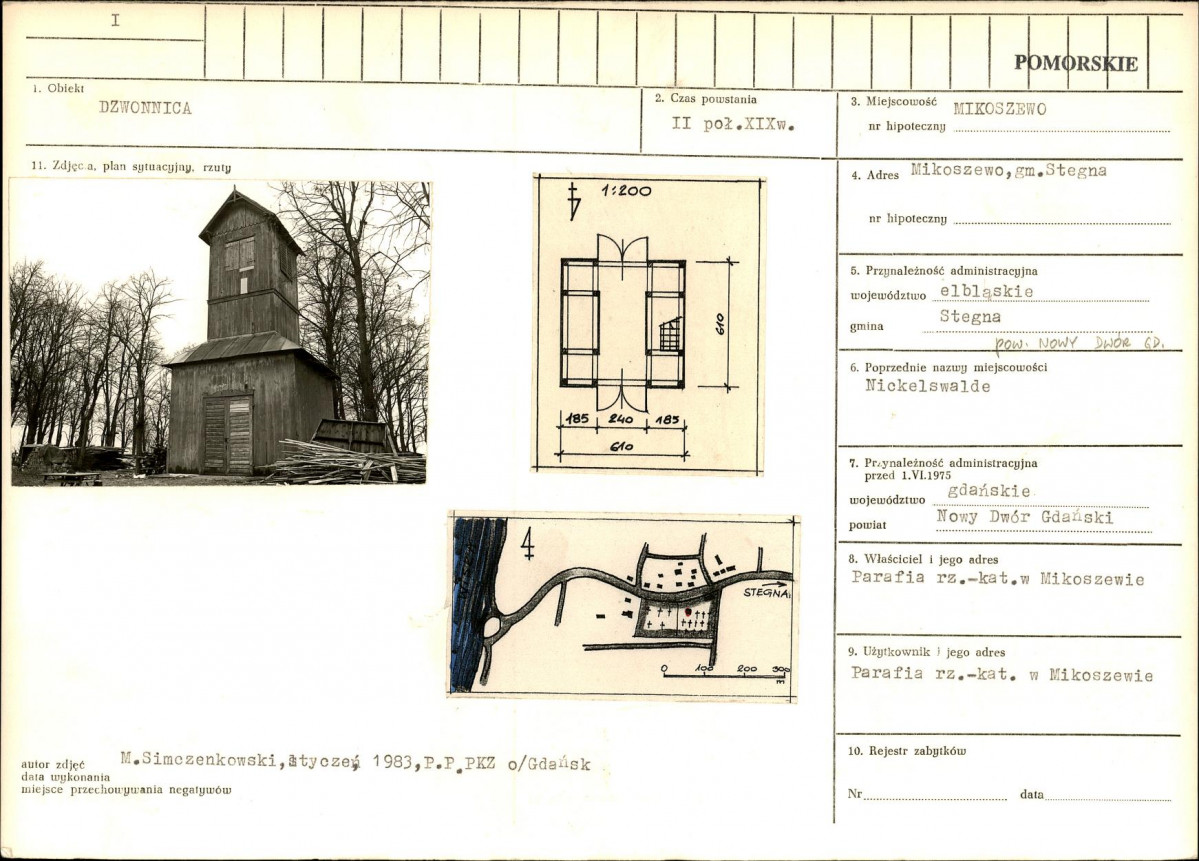 I
POMORSKIE
1. Obiekt
DZWONNICA
2. Czas powstania
II poł.XIXw.
3. Miejscowość MIKOSZEWO
nr hipoteczny
11. Zdjęcia, plan sytuacyjny, rzuty
4. Adres Mikoszewo,gm.Stegna
nr hipoteczny
5. Przynależność administracyjna
województwo elbląskie
gmina Stegna
pow. NOWY DWÓR GD.
6. Poprzednie nazwy miejscowości
Nickelswalde
7. Przynależność administracyjna
przed 1.VI.1975
województwo gdańskie
powiat Nowy Dwór Gdański
8. Właściciel i jego adres
Parafia rz.-kat.w Mikoszewie
9. Użytkownik i jego adres
Parafia rz.-kat. w Mikoszewie
10. Rejestr zabytków
Nr data
1:200
610
185 240 185
610
STEGNA
0 100 200 300
m
autor zdjęć M.Simczenkowski, styczeń 1983,P.P.PKZ o/Gdańsk
data wykonania
miejsce przechowywania negatywów